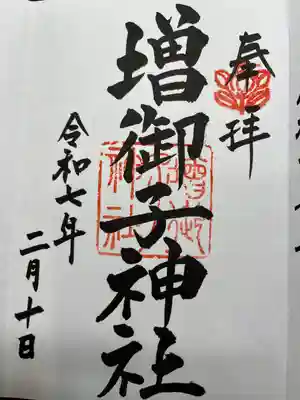 奉拝
増御子神社
令和七年
二月十日